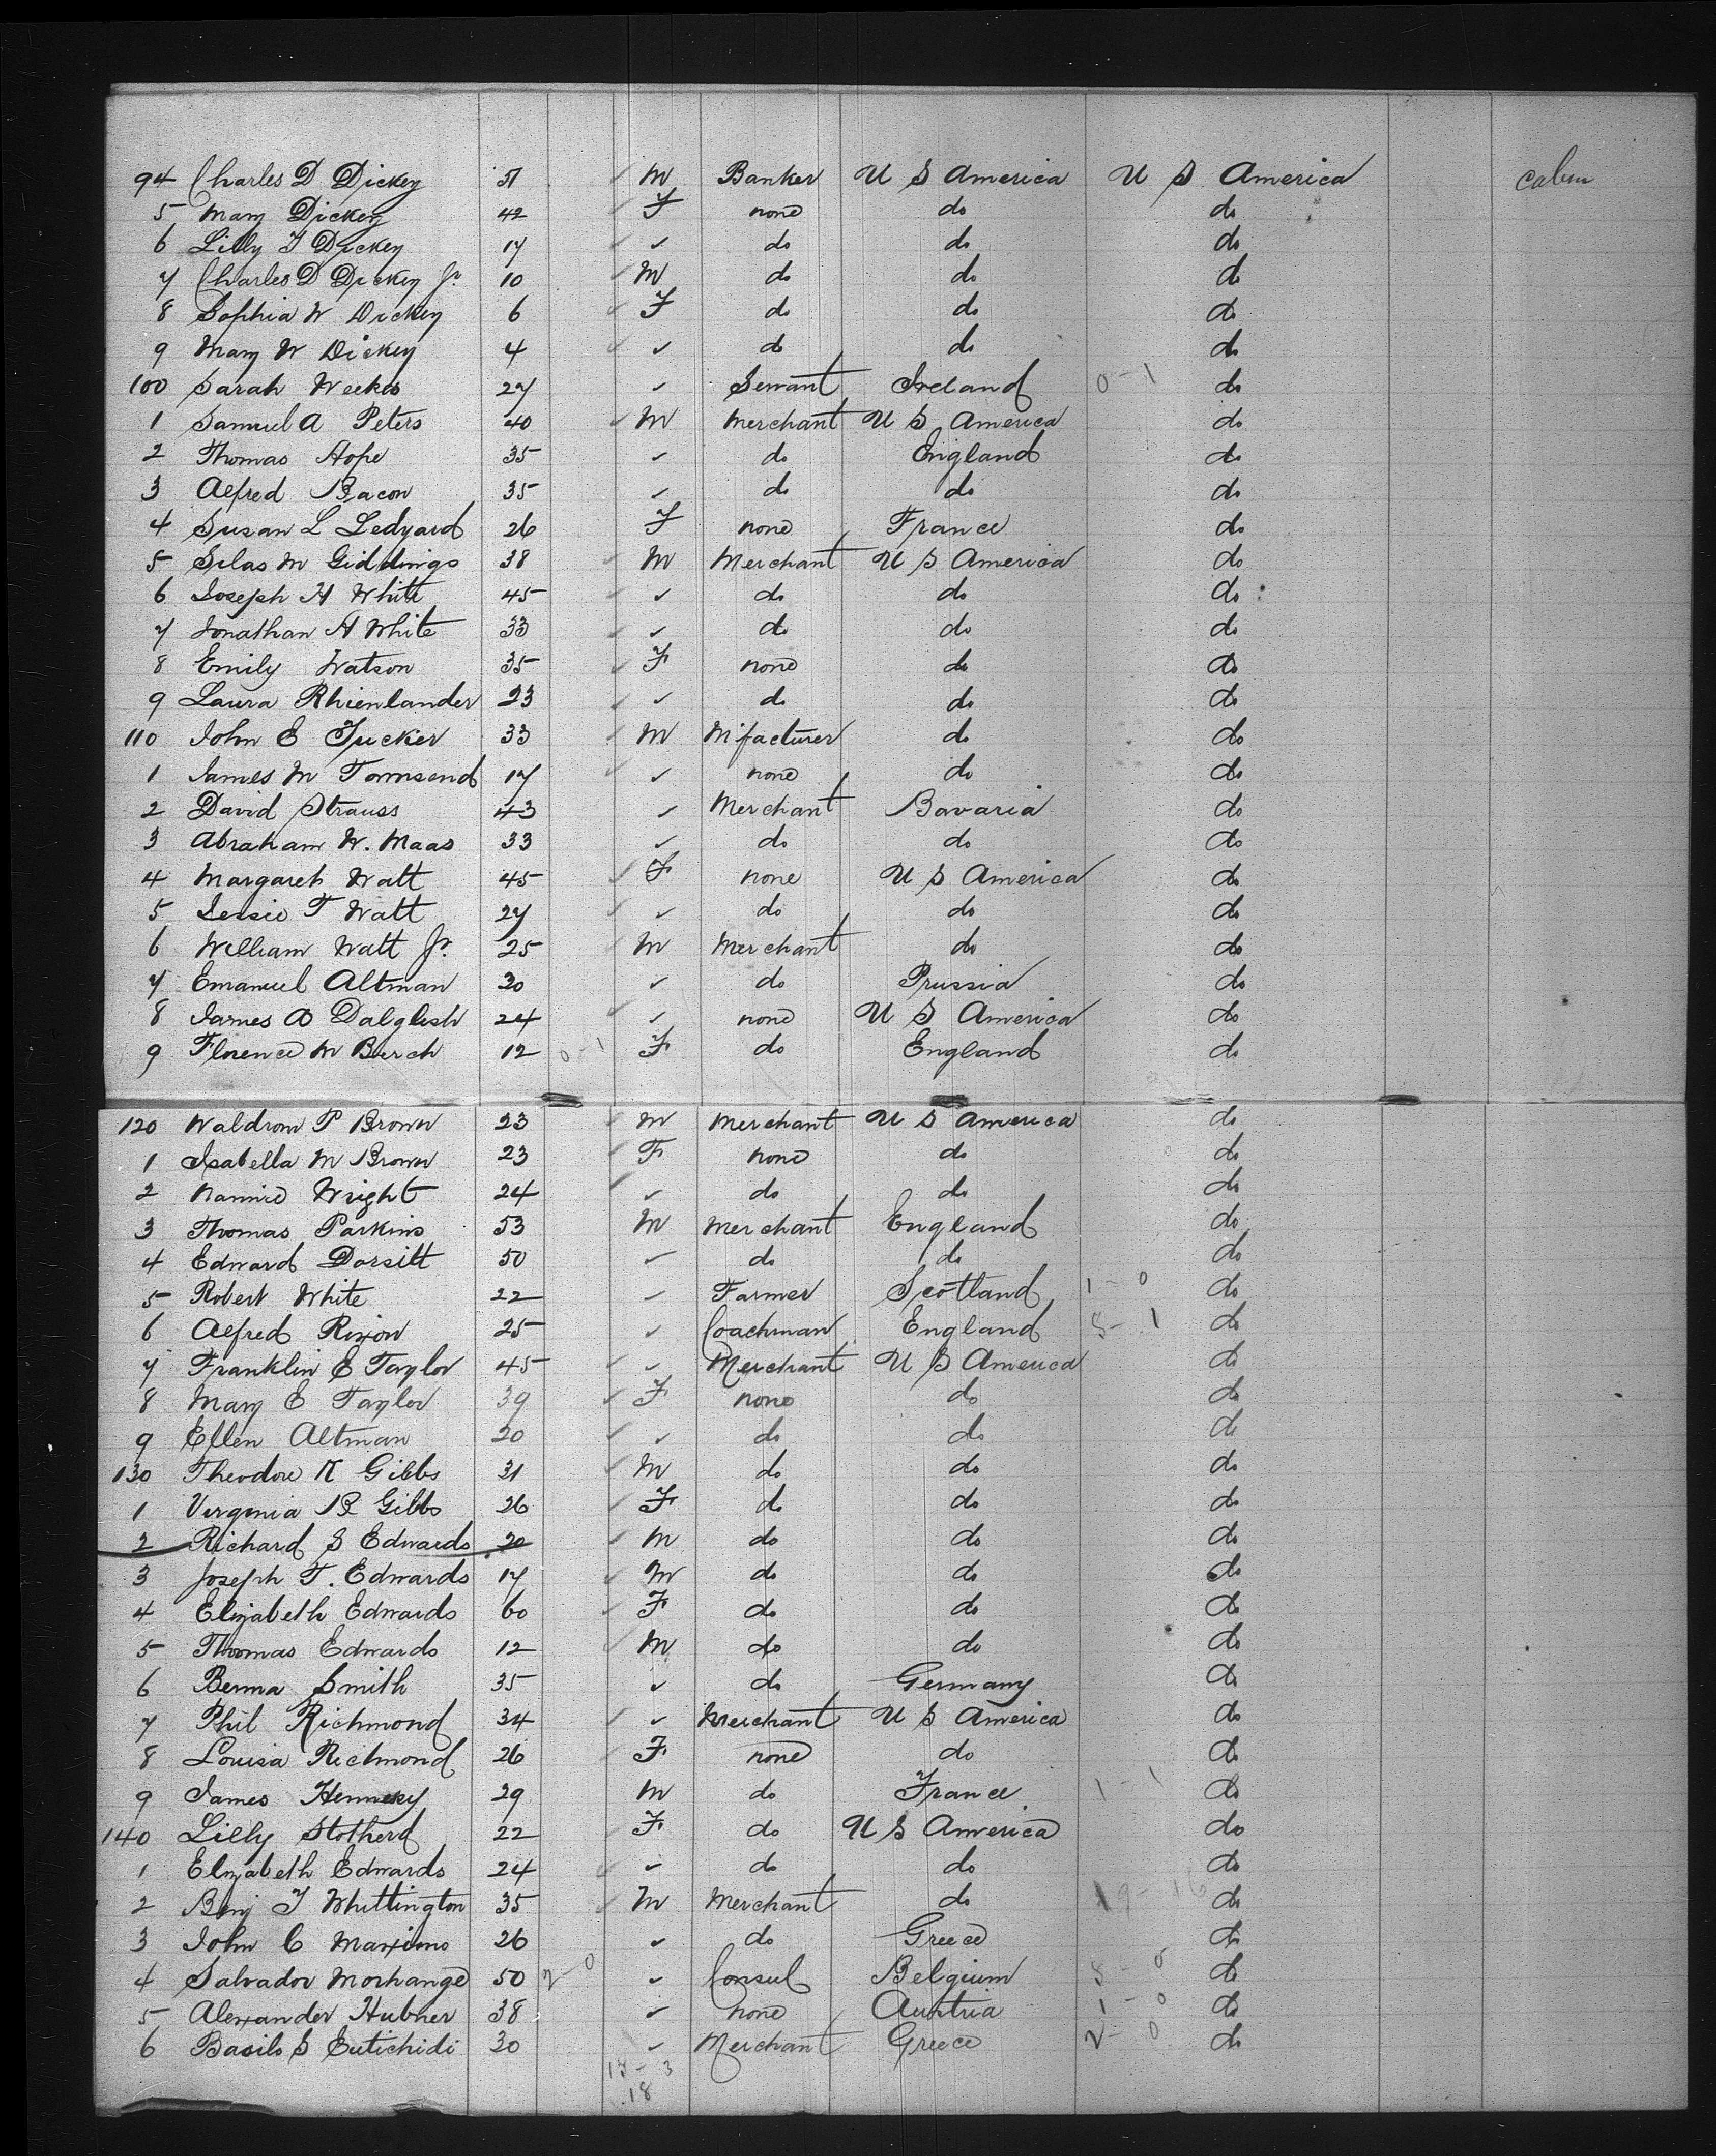 94 Charles D Dickey 51 ✓ M Banker U S America U S America cabin
5 Mary Dickey 42 ✓ F none do do
6 Lilly T Dickey 17 ✓ ✓ do do do
7 Charles D Dickey Jr 10 ✓ M do do do
8 Sophia W Dickey 6 ✓ F do do do
9 Mary W Dickey 4 ✓ ✓ do do do
100 Sarah Weekes 27 ✓ Servant Ireland 0-1 do
1 Samuel A Peters 40 ✓ M Merchant U S America do
2 Thomas Hope 35 ✓ do England do
3 Alfred Bacon 35 ✓ do do do
4 Susan L Ledyard 26 F none France do
5 Silas M Giddings 38 ✓ M Merchant U S America do
6 Joseph H White 45 ✓ ✓ do do do
7 Jonathan H White 33 ✓ ✓ do do do
8 Emily Watson 35 ✓ F none do do
9 Laura Rhienlander 23 ✓ ✓ do do do
110 John E Tucker 33 ✓ M M'facturer do do
1 James M Townsend 17 ✓ ✓ none do do
2 David Strauss 43 ✓ Merchant Bavaria do
3 Abraham W. Maas 33 ✓ do do do
4 Margaret Watt 45 ✓ F none U S America do
5 Jessie T Watt 27 ✓ ✓ do do do
6 William Watt Jr. 25 ✓ M Merchant do do
7 Emanuel Altman 30 ✓ do Prussia do
8 James O Dalglish 24 ✓ ✓ none U S America do
9 Florence M Burch 12 0-1 ✓ F do England do
120 Waldron P Brown 23 ✓ M Merchant U S America do
1 Isabella M Brown 23 ✓ F none do do
2 Nannie Wright 24 ✓ ✓ do do do
3 Thomas Parkins 53 M Merchant England do
4 Edward Dorsitt 50 ✓ do do do
5 Robert White 22 ✓ Farmer Scotland 1-0 do
6 Alfred Rixon 25 ✓ Coachman England 5-1 do
7 Franklin E Taylor 45 ✓ ✓ Merchant U S America do
8 Mary E Taylor 39 ✓ F none do do
9 Ellen Altman 20 ✓ ✓ do do do
130 Theodore K Gibbs 31 ✓ M do do do
1 Virginia B Gibbs 26 ✓ F do do do
2 Richard S Edwards 20 ✓ M do do do
3 Joseph T. Edwards 17 ✓ M do do do
4 Elizabeth Edwards 60 ✓ F do do do
5 Thomas Edwards 12 ✓ M do do do
6 Smith 35 ✓ do Germany do
7 Phil Richmond 34 ✓ ✓ Merchant U S America do
8 Louisa Richmond 26 ✓ F none do do
9 James Hennesy 29 M do France 1-1 do
140 Lilly Stotherd 22 ✓ F do U S America do
1 Elizabeth Edwards 24 ✓ ✓ do do do
2 Benj T Whittington 35 ✓ M Merchant do 19-16 do
3 John C Maximo 26 ✓ do Greece do
4 Salvador Morhange 50 2-0 ✓ Consul Belgium do
5 Alexander Hubner 38 ✓ none Austria 1-0 do
6 Basils S Eutichidi 30 ✓ Merchant Greece 2-0 do
3
18